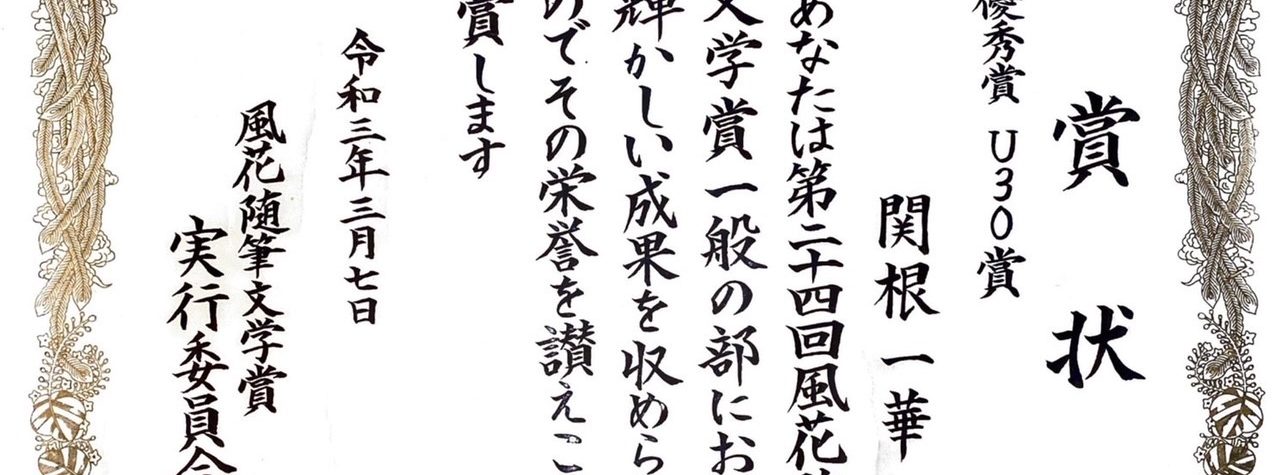 賞状
優秀賞 U30賞
関根一華
あなたは第二十四回風花
文学賞一般の部にお
輝かしい成果を収めら
のでその栄誉を讃えこ
賞します
令和三年三月七日
風花随筆文学賞
実行委員会